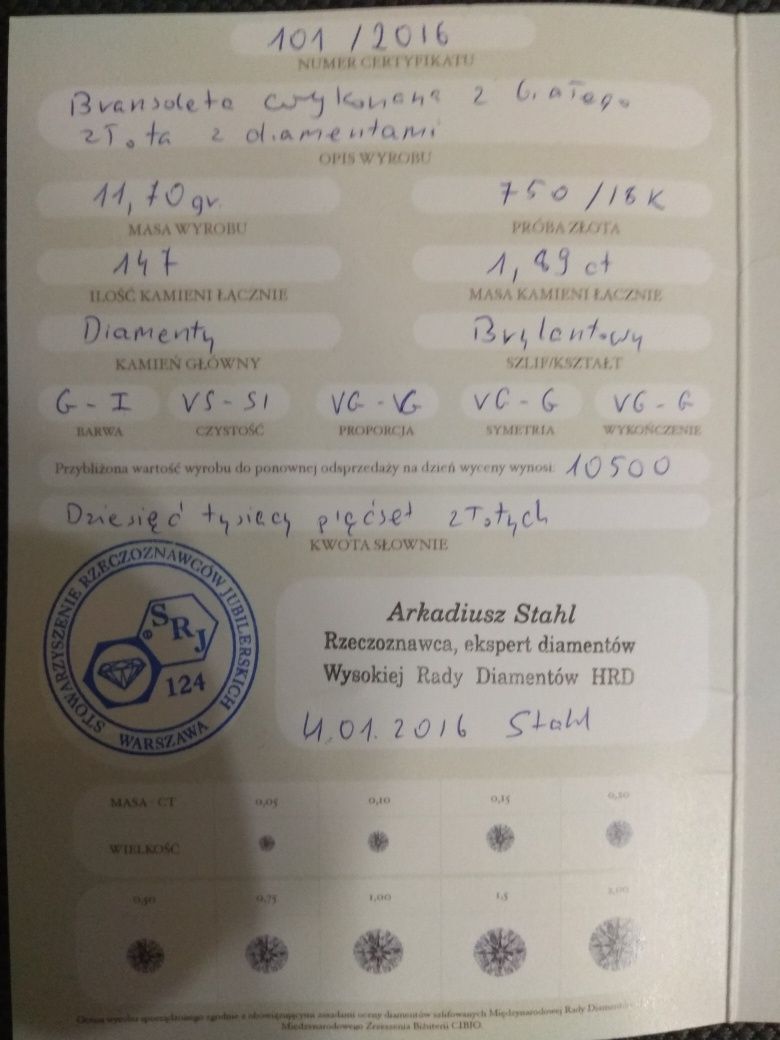 101 / 2016
NUMER CERTYFIKATU
Bransoleta wykonana z białego
złota z diamentami
OPIS WYROBU
11,70 gr. 750 / 18K
MASA WYROBU PRÓBA ZŁOTA
147 1,89 ct
ILOŚĆ KAMIENI ŁĄCZNIE MASA KAMIENI ŁĄCZNIE
Diamenty Brylantowy
KAMIEŃ GŁÓWNY SZLIF/KSZTAŁT
G - I VS - SI VG - VG VG - G VG - G
BARWA CZYSTOŚĆ PROPORCJA SYMETRIA WYKOŃCZENIE
Przybliżona wartość wyrobu do ponownej odsprzedaży na dzień wyceny wynosi: 10500
Dziesięć tysięcy pięćset złotych
KWOTA SŁOWNIE
STOWARZYSZENIE RZECZOZNAWCÓW JUBILERSKICH
WARSZAWA
® SRJ
124
Arkadiusz Stahl
Rzeczoznawca, ekspert diamentów
Wysokiej Rady Diamentów HRD
01.2016 Stahl
MASA CT 0,05 0,10 0,15
WIELKOŚĆ
0,50 0,75 1,00 1,5 2,00
Ocenę wyrobu sporządzonego zgodnie z obowiązującymi zasadami oceny diamentów szlifowanych Międzynarodowej Rady
Międzynarodowego Zrzeszenia Biżuterii CIBJO.